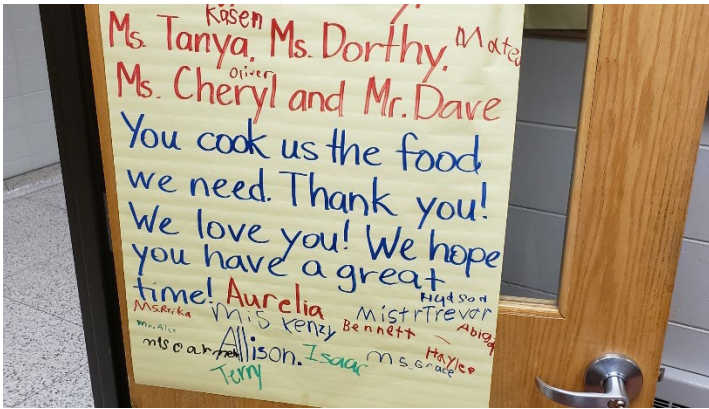 Kasen
Ms. Tanya, Ms. Dorthy, Mateo
Oliver
Ms. Cheryl and Mr. Dave
You cook us the food
we need. Thank you!
We love you! We hope
you have a great
time! Aurelia Hudson
Ms Reika Mis Kenzy Mistr Trevor
Mr. Alex Bennett Abigail
Allison. Isaac Ms. Grace Haylee
Terry